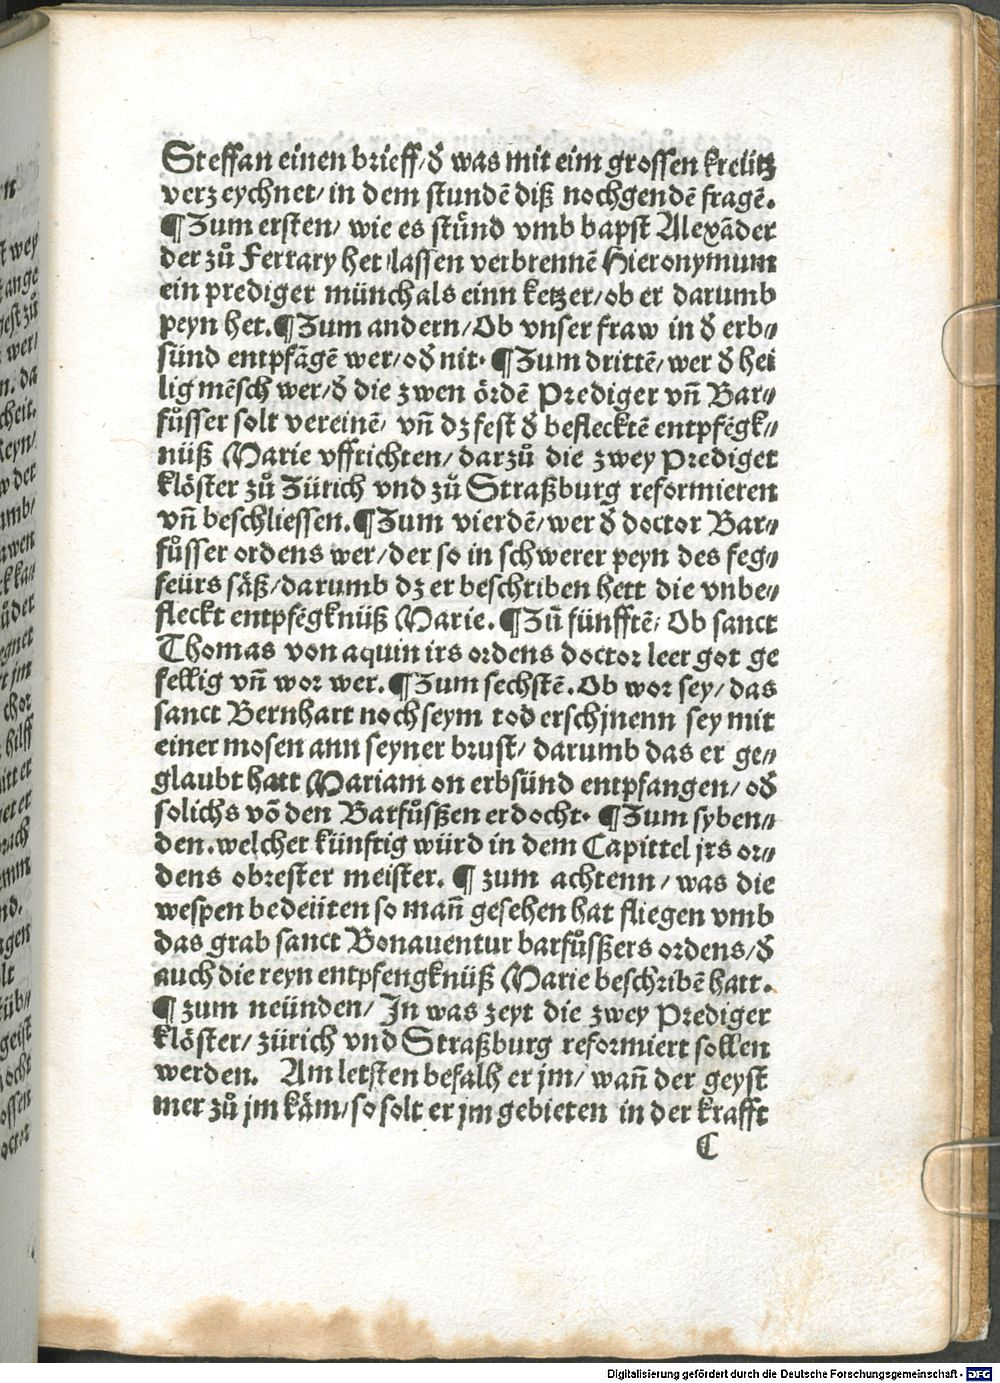 Steffan einen brieff/ď was mit eim grossen kreütz
verzeychnet/ in dem stundē diß nochgendē fragē.
¶Zum ersten/ wie es stünd vmb bapst Alexāder
der zů Ferrary het lassen verbrennē Hieronymum
ein prediger münch als einn ketzer/ ob er darumb
peyn het. ¶Zum andern/ Ob vnser fraw in ď erb⸗
sünd entpfāgē wer/ oď nit. ¶Zum drittē/ wer ď hei
lig mēsch wer/ ď die zwen ördē Prediger vn̄ Bar⸗
fůsser solt vereinē/ vn̄ dz fest ď beflecktē entpfēgk⸗
nüß Marie vffrichten/ darzů die zwey Prediger
klöster zů Zürich vnd zů Straßburg reformieren
vn̄ beschliessen. ¶Zum vierdē/ wer ď doctor Bar⸗
fůsser ordens wer/ der so in schwerer peyn des feg⸗
feürs säß/ darumb dz er beschriben hett die vnbe⸗
fleckt entpfēgknüß Marie. ¶Zū fünfftē/ Ob sanct
Thomas von aquin irs ordens doctor leer got ge
fellig vn̄ wor wer. ¶Zum sechstē. Ob wor sey/ das
sanct Bernhart noch seym tod erschjnenn sey mit
einer mosen ann seyner brust/ darumb das er ge⸗
glaubt hatt Mariam on erbsünd entpfangen/ oď
solichs vō den Barfůsßen erdocht. ¶Zum syben⸗
den. welcher künftig würd in dem Capittel jrs or⸗
dens obrester meister. ¶ zum achtenn/ was die
wespen bedeüten so man̄ gesehen hat fliegen vmb
das grab sanct Bonauentur barfůsßers ordens/ ď
auch die reyn entpfengknüß Marie beschribē hatt.
¶ zum neünden/ In was zeyt die zwey Prediger
klöster/ zürich vnd Straßburg reformiert sollen
werden. Am letsten befalh er jm/ wan̄ der geyst
mer zů jm käm/ so solt er jm gebieten in der krafft
C
Digitalisierung gefördert durch die Deutsche Forschungsgemeinschaft - DFG